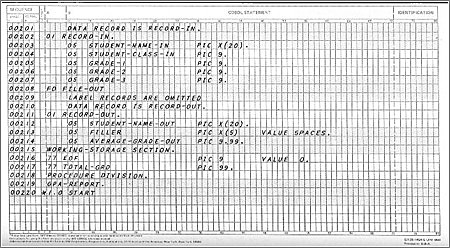 SEQUENCE
COBOL STATEMENT
IDENTIFICATION
00201 DATA RECORD IS RECORD-IN.
00202 01 RECORD-IN.
00203 05 STUDENT-NAME-IN PIC X(20).
00204 05 STUDENT-CLASS-IN PIC 9.
00205 05 GRADE-1 PIC 9.
00206 05 GRADE-2 PIC 9.
00207 05 GRADE-3 PIC 9.
00208 FD FILE-OUT
00209 LABEL RECORDS ARE OMITTED
00210 DATA RECORD IS RECORD-OUT.
00211 01 RECORD-OUT.
00212 05 STUDENT-NAME-OUT PIC X(20).
00213 05 FILLER PIC X(5) VALUE SPACES.
00214 05 AVERAGE-GRADE-OUT PIC 9.99.
00215 WORKING-STORAGE SECTION.
00216 77 EOF PIC 9 VALUE 0.
00217 77 TOTAL-GRD PIC 99.
00218 PROCEDURE DIVISION.
00219 GPA-REPORT.
00220 START